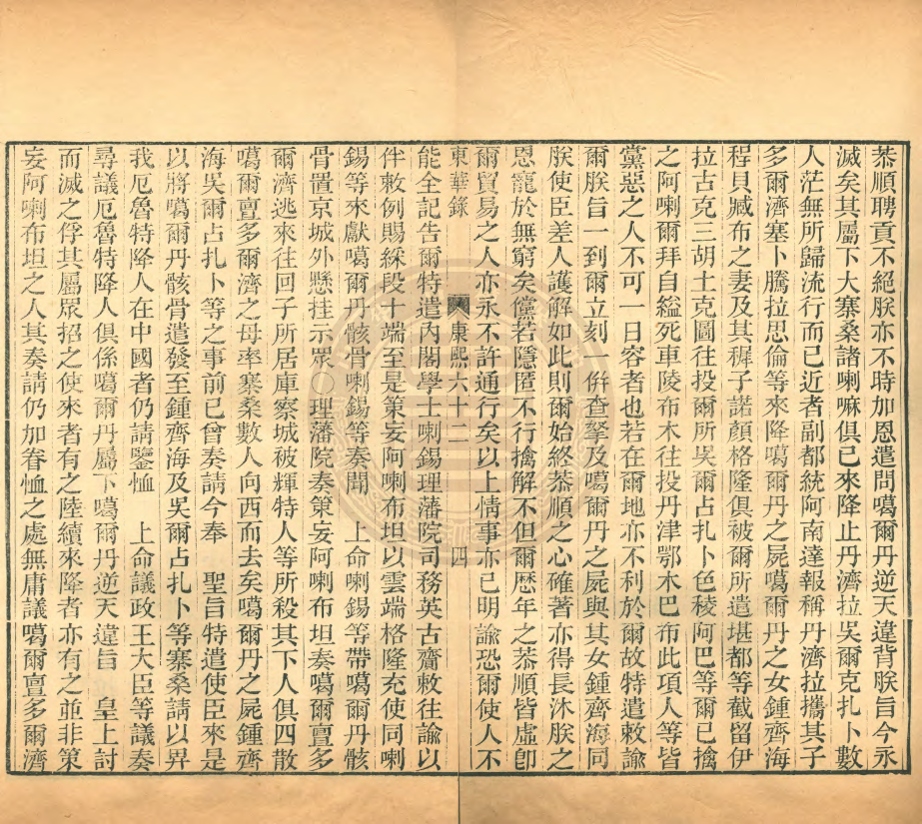 恭順聘貢不絕朕亦不時加恩遣問噶爾丹逆天違背朕旨今永
滅矣其屬下大寨桑諸喇嘛俱已來降止丹濟拉吳爾克扎卜數
人茫無所歸流行而已近者副都統阿南達報稱丹濟拉攜其子
多爾濟塞卜騰拉思倫等來降噶爾丹之屍噶爾丹之女鍾齊海
程貝臧布之妻及其穉子諾顏格隆俱被爾所遣堪都等截留伊
拉古克三胡土克圖往投爾所吳爾占扎卜色稜阿巴等爾已擒
之阿喇爾拜自縊死車陵布木往投丹津鄂木巴布此項人等皆
黨惡之人不可一日容者也若在爾地亦不利於爾故特遣敕諭
爾朕旨一到爾立刻一倂查拏及噶爾丹之屍與其女鍾齊海同
朕使臣差人護解如此則爾始終恭順之心確著亦得長沐朕之
恩寵於無窮矣儻若隱匿不行擒解不但爾歷年之恭順皆虛卽
爾貿易之人亦永不許通行矣以上情事亦已明諭恐爾使人不
東華錄 康熙六十二 四
能全記告爾特遣內閣學士喇錫理藩院司務英古齎敕往諭以
伴敕例賜綵段十端至是策妄阿喇布坦以雲端格隆充使同喇
錫等來獻噶爾丹骸骨喇錫等奏聞 上命喇錫等帶噶爾丹骸
骨置京城外懸挂示眾○理藩院奏策妄阿喇布坦奏噶爾亶多
爾濟逃來往回子所居庫察城被輝特人等所殺其下人俱四散
噶爾亶多爾濟之母率寨桑數人向西而去矣噶爾丹之屍鍾齊
海吳爾占扎卜等之事前已曾奏請今奉 聖旨特遣使臣來是
以將噶爾丹骸骨遣發至鍾齊海及吳爾占扎卜等寨桑請以畀
我厄魯特降人在中國者仍請鑒恤 上命議政王大臣等議奏
尋議厄魯特降人俱係噶爾丹屬下噶爾丹逆天違旨 皇上討
而滅之俘其屬眾招之使來者有之陸續來降者亦有之並非策
妄阿喇布坦之人其奏請仍加眷恤之處無庸議噶爾亶多爾濟